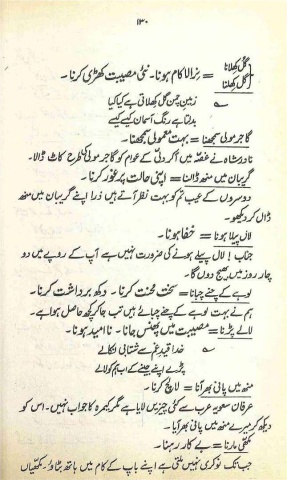 ۱۳۰
گل کھلانا
گل کھلنا = نرالا کام ہونا۔ نئی مصیبت کھڑی کرنا۔
زمینِ چمن گل کھلاتی ہے کیا کیا
بدلتا ہے رنگ آسماں کیسے کیسے
گاجر مولی سمجھنا = بہت معمولی سمجھنا۔
نادر شاہ نے غصّہ میں آکر دلّی کے عوام کو گاجر مولی کی طرح کاٹ ڈالا۔
گریبان میں منھ ڈالنا = اپنی حالت پر غور کرنا۔
دوسروں کے عیب تم کو بہت نظر آتے ہیں ذرا اپنے گریبان میں منھ
ڈال کر دیکھو۔
لال پیلا ہونا = خفا ہونا۔
جناب! لال پیلے ہونے کی ضرورت نہیں ہے آپ کے روپے میں دو
چار روز میں بھیج دوں گا۔
لوہے کے چنے چبانا = سخت محنت کرنا۔ دکھ برداشت کرنا۔
ہم نے بہت لوہے کے چنے چبائے ہیں تب جا کر کچھ حاصل ہوا ہے۔
لالے پڑنا = مصیبت میں پھنس جانا۔ نا امید ہونا۔
خدا قیدِ غم سے شتابی نکالے
پڑے اپنے جینے کے اب ہم کو لالے
منھ میں پانی بھر آنا = لالچ کرنا۔
عرفان سعودیہ عرب سے کئی چیزیں لایا ہے مگر کیمرہ کا جواب نہیں۔ اس کو
دیکھ کر میرے منھ میں پانی بھر آیا۔
مکھی مارنا = بے کار رہنا۔
جب تک نوکری نہیں ملتی ہے اپنے باپ کے کام میں ہاتھ بٹاؤ۔ مکھیاں